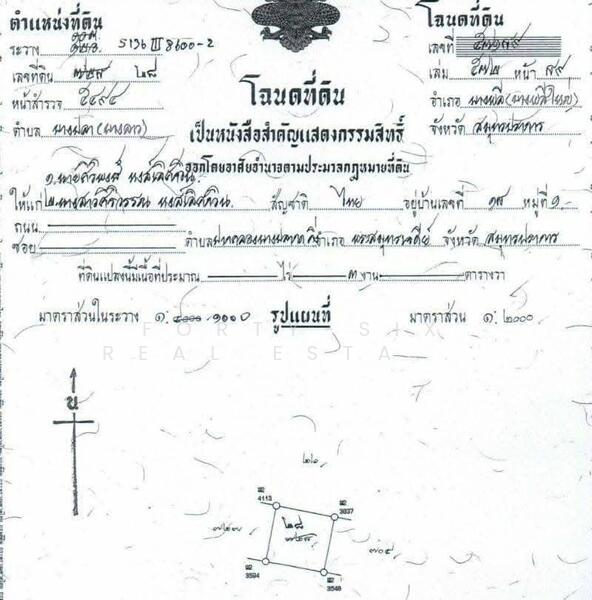 ตำแหน่งที่ดิน
ระวาง 5136 III 8600-2
เลขที่ดิน ๒๘
หน้าสำรวจ ๕๔๙๔
ตำบล บางปลา (บางลาว)
โฉนดที่ดิน
เลขที่
เล่ม หน้า ๙๙
อำเภอ บางพลี (บางพลีใหญ่)
จังหวัด สมุทรปราการ
โฉนดที่ดิน
เป็นหนังสือสำคัญแสดงกรรมสิทธิ์
ออกโดยอาศัยอำนาจตามประมวลกฎหมายที่ดิน
ให้แก่ สัญชาติ ไทย อยู่บ้านเลขที่ หมู่ที่ ๑
ถนน
ซอย ตำบล อำเภอ พระสมุทรเจดีย์ จังหวัด สมุทรปราการ
ที่ดินแปลงนี้มีเนื้อที่ประมาณ ไร่ ๓ งาน ตารางวา
มาตราส่วนในระวาง ๑: ๔๐๐๐ ๑๐๐๐ รูปแผนที่ มาตราส่วน ๑: ๒๐๐๐
FORTY SIX
REAL ESTA
น
4113
3837
๒๘
๗๐๕
3594
3548